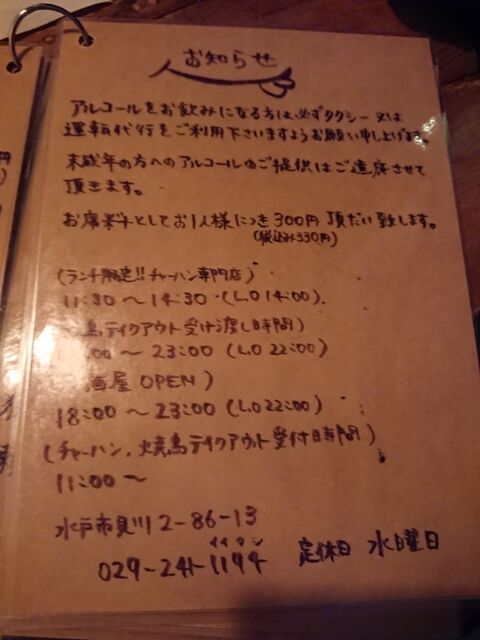 お知らせ
アルコールをお飲みになる方は、必ずタクシー 又は
運転代行をご利用下さいますようお願い申し上げます。
未成年の方へのアルコールのご提供はご遠慮させて
頂きます。
お席料としてお1人様につき300円頂だい致します。
(税込み330円)
(ランチ限定!!チャーハン専門店)
11:30 〜 14:30 (L.O 14:00)
鳥テイクアウト受け渡し時間)
:00 〜 23:00 (L.O 22:00)
酒屋 OPEN)
18:00 〜 23:00 (L.O 22:00)
(チャーハン、焼鳥テイクアウト受付時間)
11:00 〜
水戸市見川 2-86-13
029-241-1194
定休日 水曜日